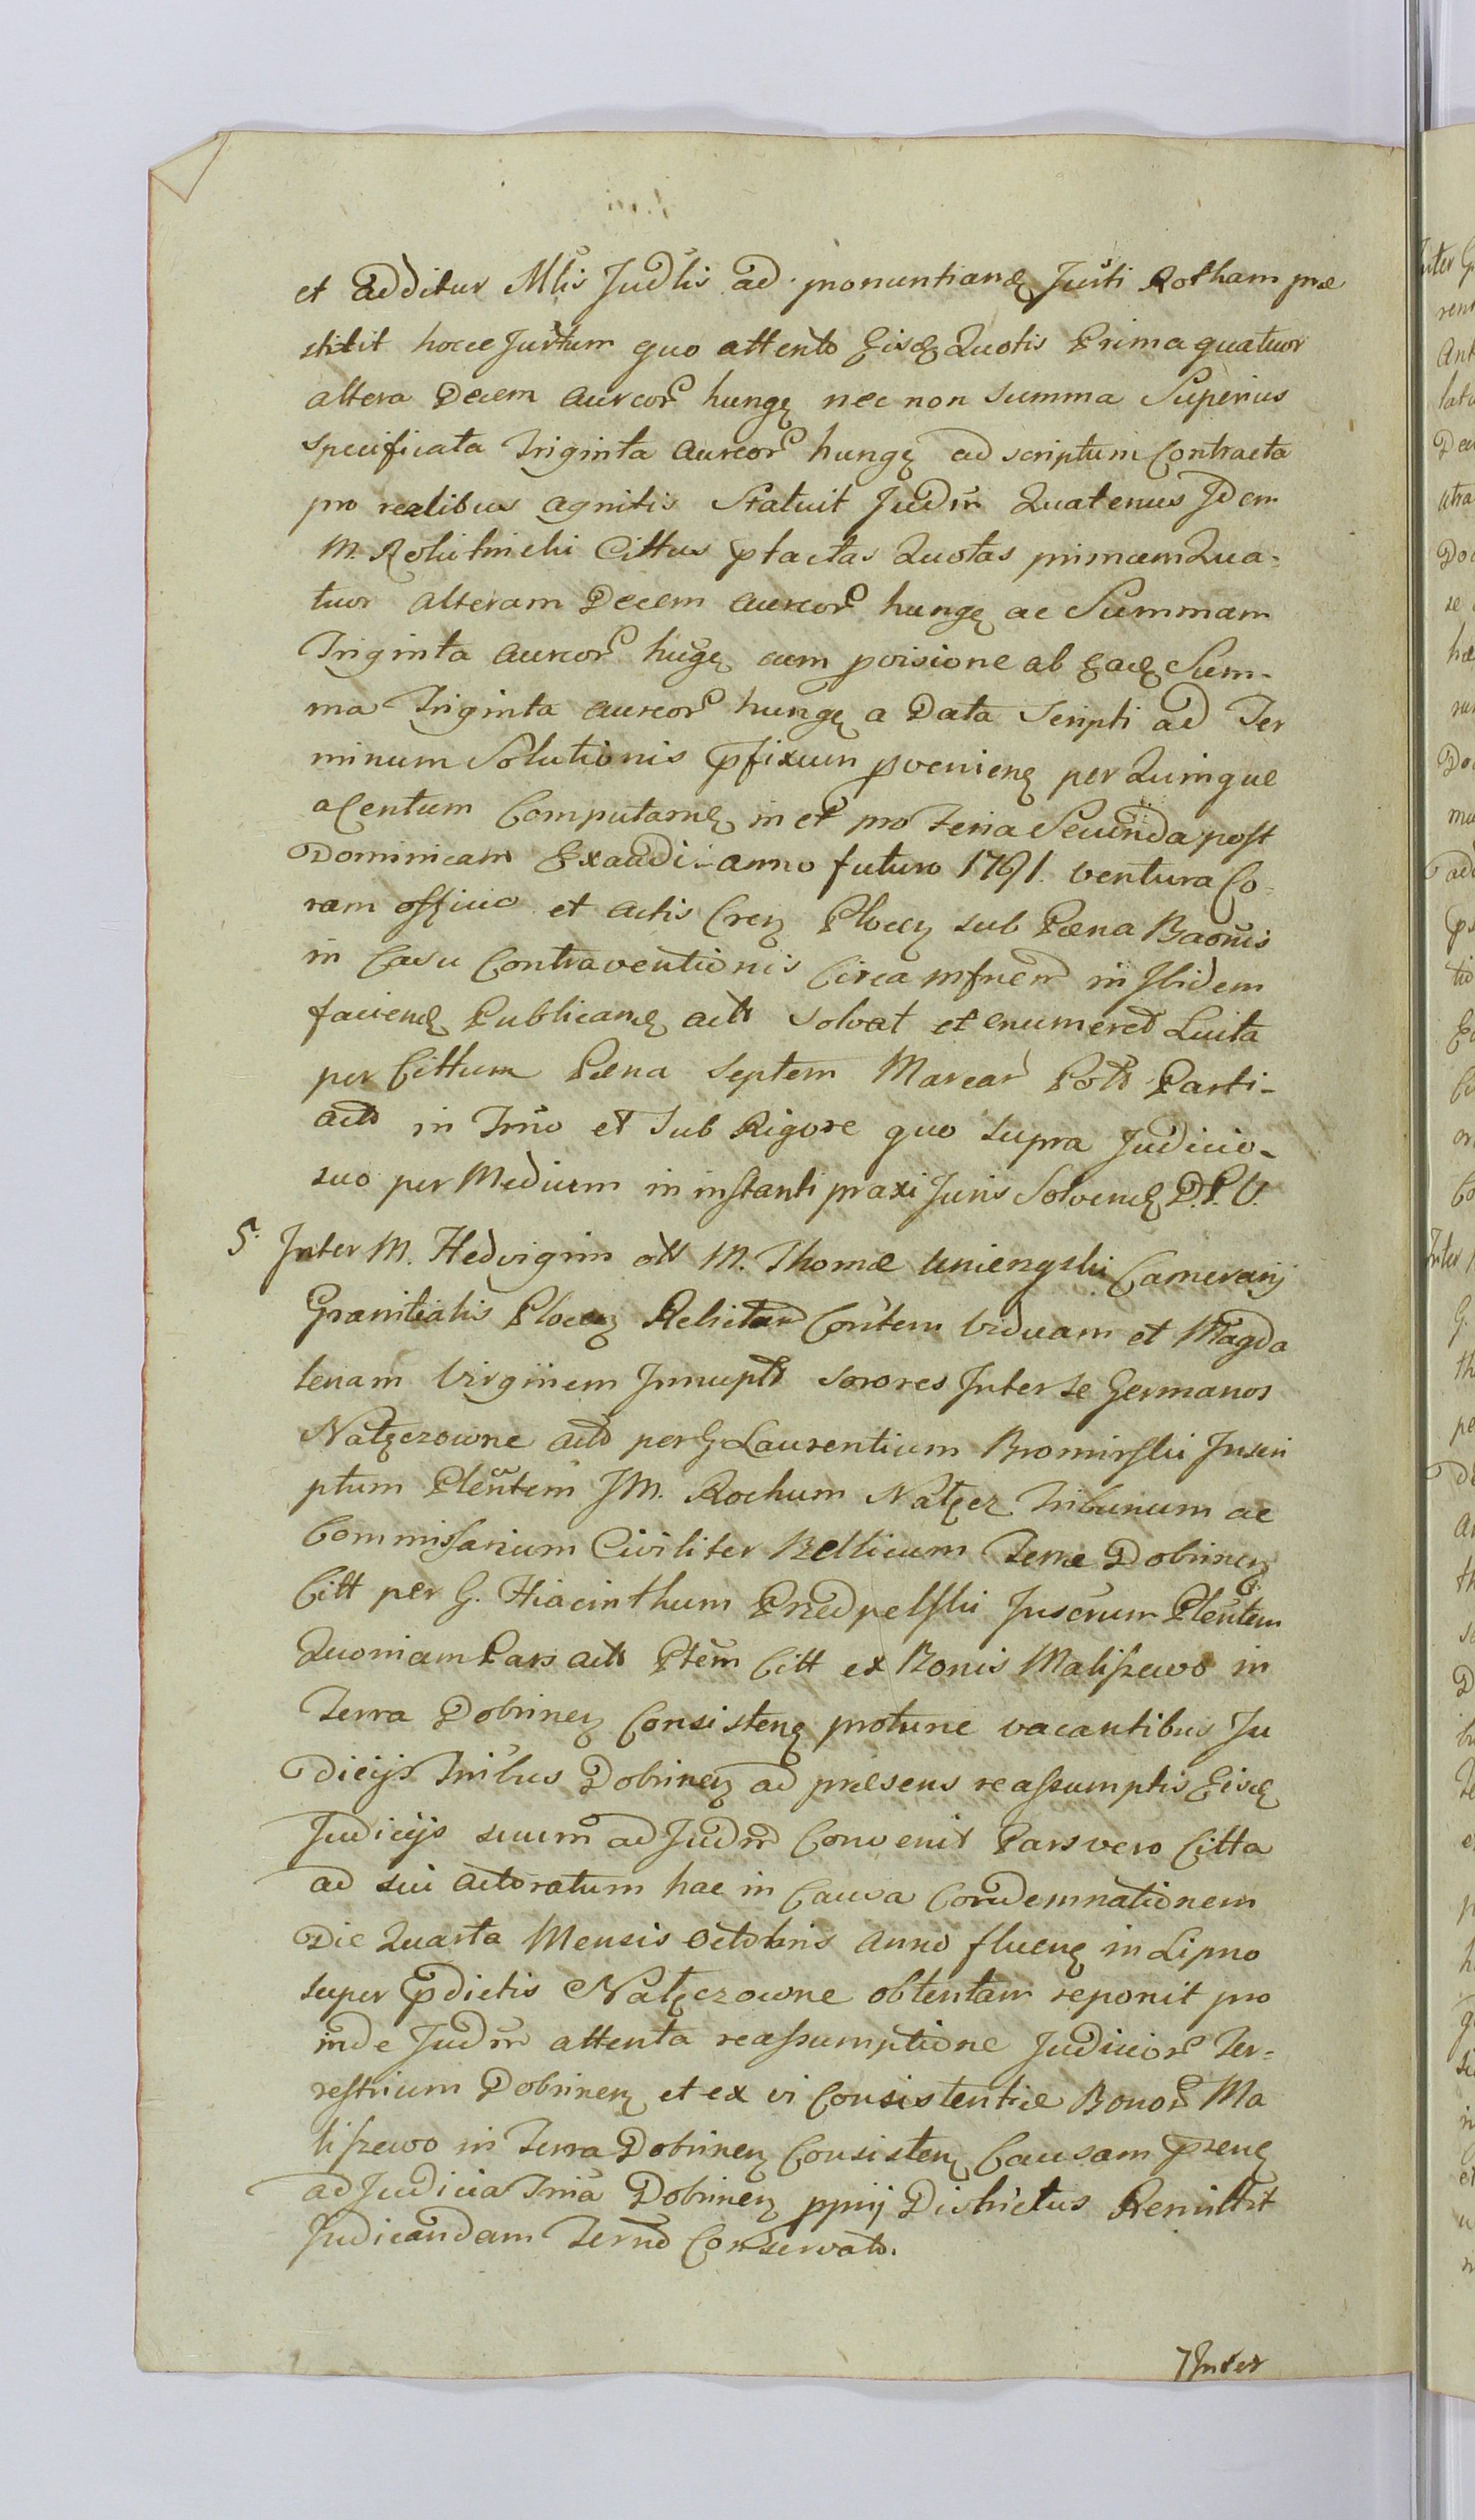 et additur Mlis Judlis ad pronuntianȩ Jurti Rotham præ
stitit hocce Jurtum quo attento Eisȩ Quotis Prima quatuor
altera Decem aureor hungȩ nec non summa Superius
specificata Triginta aureor hungȩ ad scriptum Contracta
pro realibus agnitis Statuit Judm Quatenus Idem
M. Rokitnicki Cittus ptactas Quotas primam Qua-
tuor alteram Decem aureor hungȩ ac Summam
Triginta aureor hugȩ cum pvisione ab Eaȩ Sum-
ma Triginta aureor hungȩ a Data Scripti ad Ter
minum Solutionis pfixum pvenienȩ per Quinque
a Centum Computanȩ in et pro Feria Secunda post
Dominicam Exaudi anno futuro 1791. ventura Co-
ram officio et actis Crenȩ Plocenȩ sub Pæna Baonis
in Casu Contraventionis Circa mfnem in Ibidem
facienȩ Publicanȩ acto solvat et enumeret Luita
per Cittum Pæna septem Marcar Polo Parti-
acto in Trno et sub Rigore quo supra Judicio-
suo per Medium in instanti praxi Juris Solvenȩ D.P.U.
5. Inter M. Hedvigim oli M. Thomæ Umienȩski Camerarij
Granitialis Plocenȩ Relictam Contem viduam et Magda
lenam Virginem Innupt sorores Inter se Germanos
Natȩczowne acto per G Laurentium Bromirski Inscri
ptum Plentem JM. Rochum Natȩcz Tribunum ac
Commissarium Civiliter Bellicum Terræ Dobrinenȩ
Citt per G. Hiacinthum Przedpelski Inscrum Plentem
Quoniam Pars acto Ptem Citt ex Bonis Maliszewo in
Terra Dobrinenȩ Consistenȩ protunc vacantibus Ju
dicijs Tribus Dobrinenȩ ad præsens reassumptis Eisȩ
Judicijs suum ad Judm Convenit Pars vero Citta
ad sui actoratum hac in Causa Condemnationem
Die Quarta Mensis octobris anno fluenȩ in Lipno
super pdictis Natȩczowne obtentam reponit pro
inde Judm attenta reassumptione Judicior Ter-
restrium Dobrinenȩ et ex vi Consistentiæ Bonor Ma
liszewo in Terra Dobrinenȩ Consistenȩ Causam pzenȩ
ad Judicia Tria Dobrinenȩ pprij Districtus Remittit
Judicandam Terno Conservato.
Inter